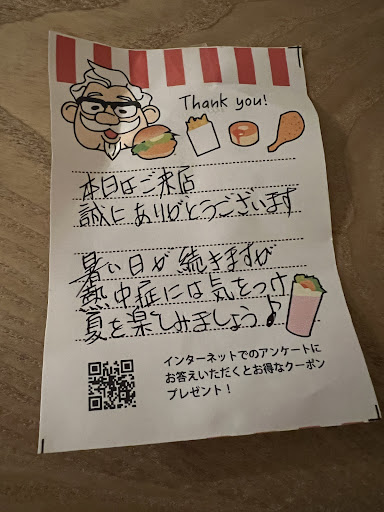 Thank you!
本日はご来店
誠にありがとうございます
暑い日が続きますが
熱中症には気をつけ
夏を楽しみましょう♪
インターネットでのアンケートに
お答えいただくとお得なクーポン
プレゼント！